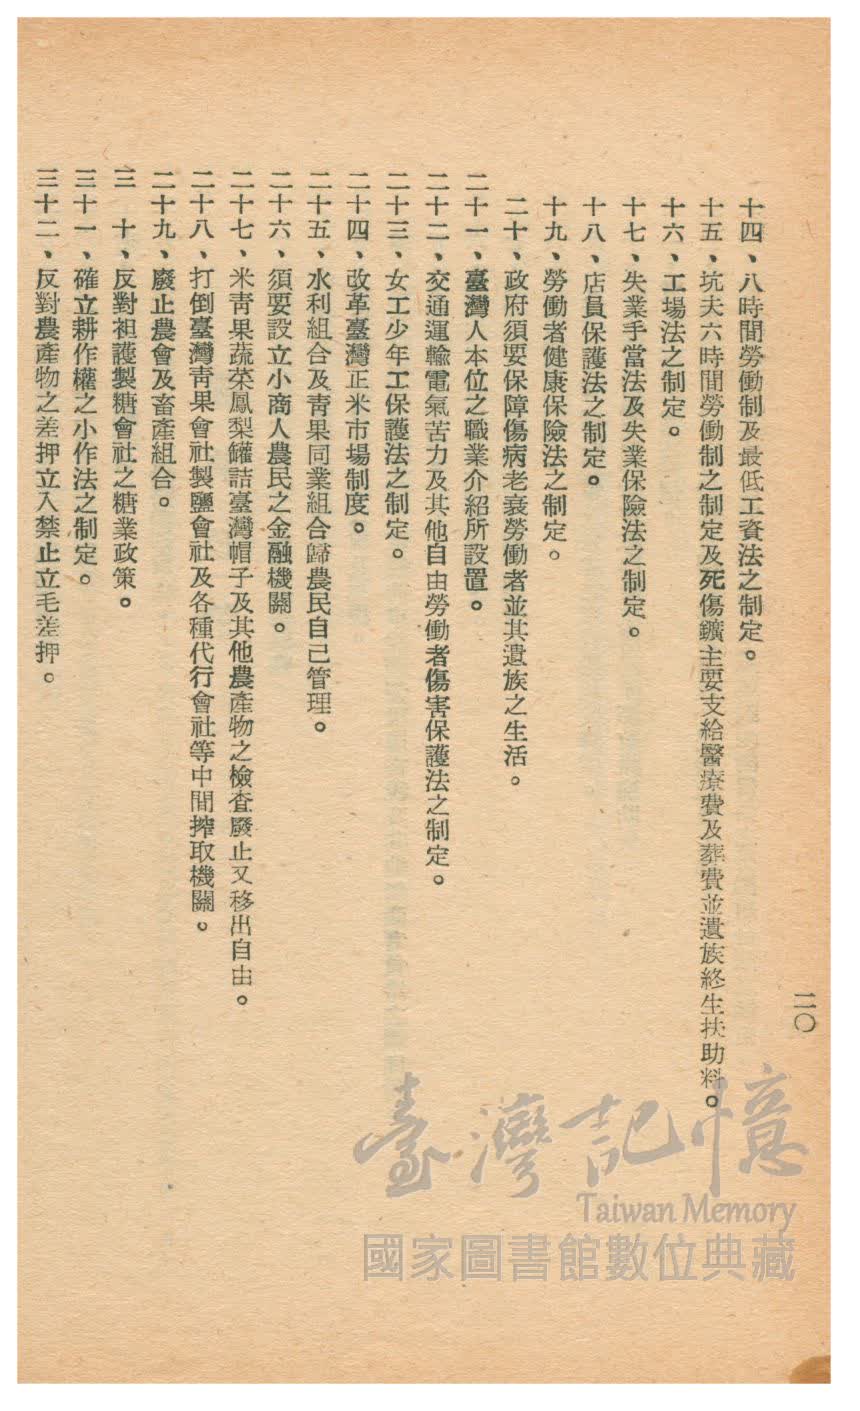 二〇
十四、八時間勞働制及最低工資法之制定。
十五、坑夫六時間勞働制之制定及死傷鑛主要支給醫療費及葬費並遺族終生扶助料。
十六、工場法之制定。
十七、失業手當法及失業保險法之制定。
十八、店員保護法之制定。
十九、勞働者健康保險法之制定。
二十、政府須要保障傷病老衰勞働者並其遺族之生活。
二十一、臺灣人本位之職業介紹所設置。
二十二、交通運輸電氣苦力及其他自由勞働者傷害保護法之制定。
二十三、女工少年工保護法之制定。
二十四、改革臺灣正米市場制度。
二十五、水利組合及靑果同業組合歸農民自己管理。
二十六、須要設立小商人農民之金融機關。
二十七、米靑果蔬菜鳳梨罐詰臺灣帽子及其他農產物之檢查廢止又移出自由。
二十八、打倒臺灣靑果會社製鹽會社及各種代行會社等中間搾取機關。
二十九、廢止農會及畜產組合。
三十、反對袒護製糖會社之糖業政策。
三十一、確立耕作權之小作法之制定。
三十二、反對農產物之差押立入禁止立毛差押。
臺灣記憶
Taiwan Memory
國家圖書館數位典藏